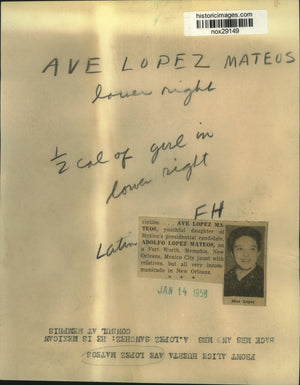 historicimages.com
nox29149
AVE LOPEZ MATEOS
lower right
1/2 col of girl in
lower right
FH
Latin
cipline. . . AVE LOPEZ MA-
TEOS, youthful daughter of
Mexico's presidential candidate,
ADOLFO LOPEZ MATEOS, on
a Fort Worth, Memphis, New
Orleans, Mexico City jaunt with
relatives, but all very incom-
municado in New Orleans.
* * *
Miss Lopez
JAN 14 1958
FRONT ALICE HUERTA AVE LOPEZ MATEOS
BACK MRS AND MRS A.LOPEZ SANCHEZ: HE IS MEXICAN
CONSUL AT MEMPHIS